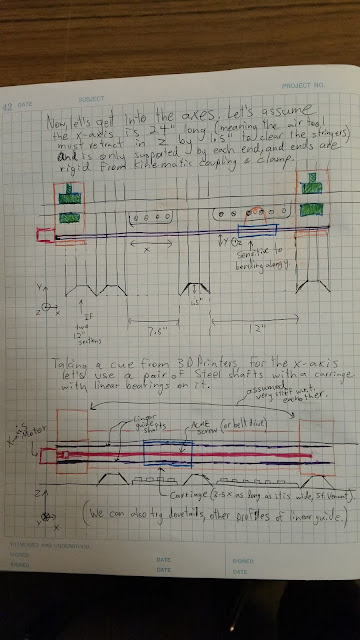 42 DATE
SUBJECT
PROJECT NO.
Now, let's get into the axes. Let's assume
the x-axis is 24" long (meaning the air tool
must retract in Z by 1.5" to clear the stringers)
and is only supported by each end, and ends are
rigid from kinematic coupling & clamp.
X
Y
Z
Sensitive to
bending along y
Y
Z
X
IF
two
12"
sections
1.5"
7.5"
12"
Taking a cue from 3D Printers, for the x-axis
let's use a pair of steel shafts with a carriage
with linear bearings on it.
assumed
very stiff w.r.t.
each other.
X-axis
Motor
Linear
guide
shafts
ACME
screw (or belt drive)
Z
Y
X
Carriage (2-5x as long as it is wide, St. Venant).
(We can also try dovetails, other profiles of linear guide.)
WITNESSED AND UNDERSTOOD
SIGNED
DATE
SIGNED
SIGNED
DATE
DATE